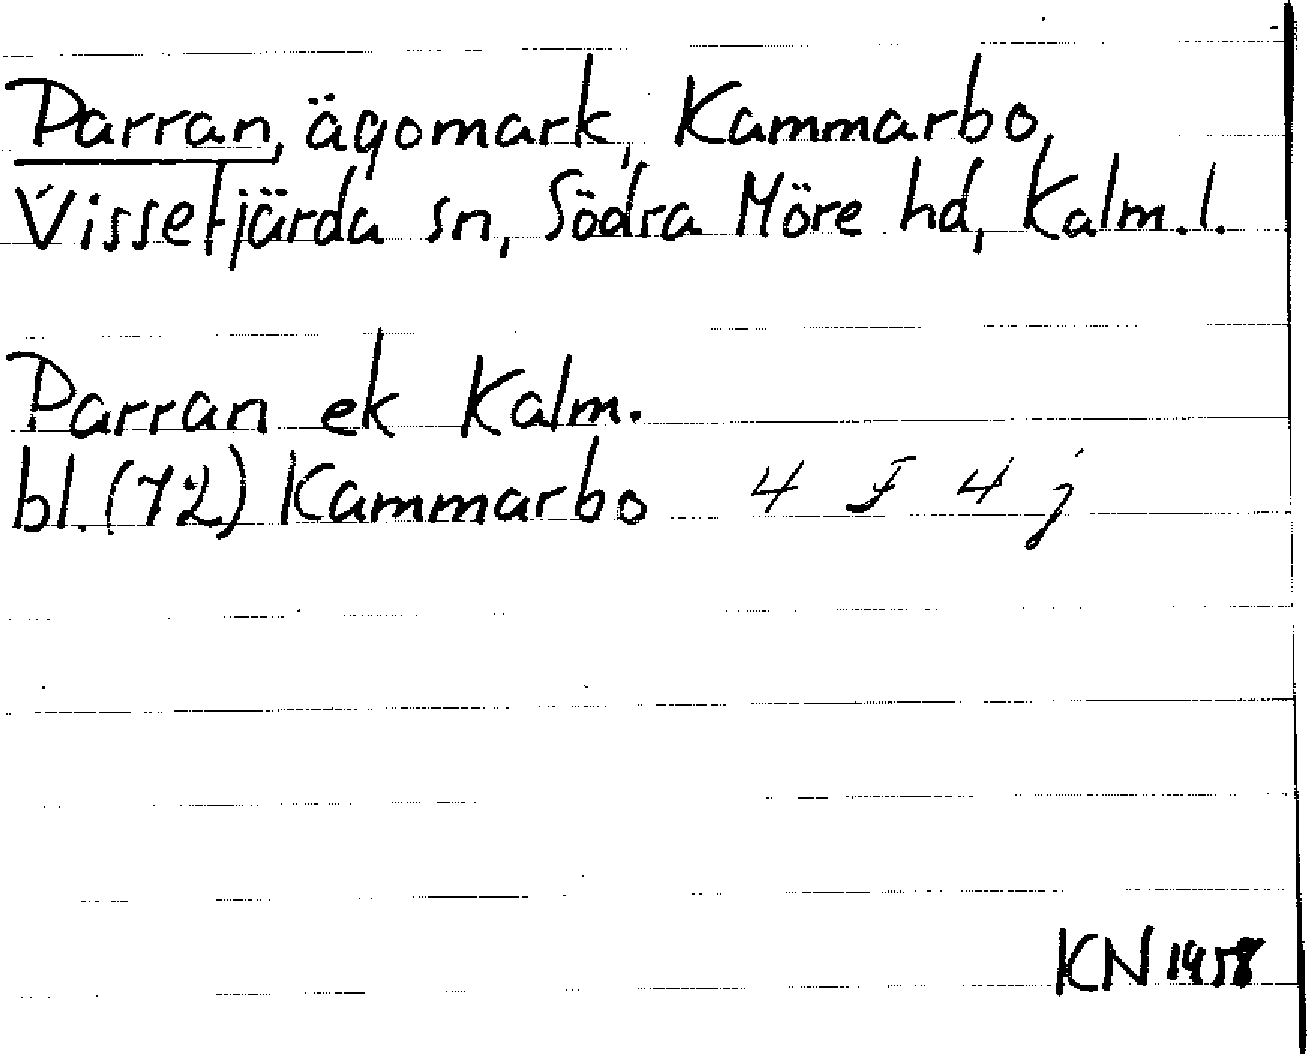 Parran, ägomark, Kammarbo,
Vissefjärda sn, Södra Möre hd, Kalm. l.
Parran ek Kalm.
bl. (72) Kammarbo 4 F 4 j
KN 1958